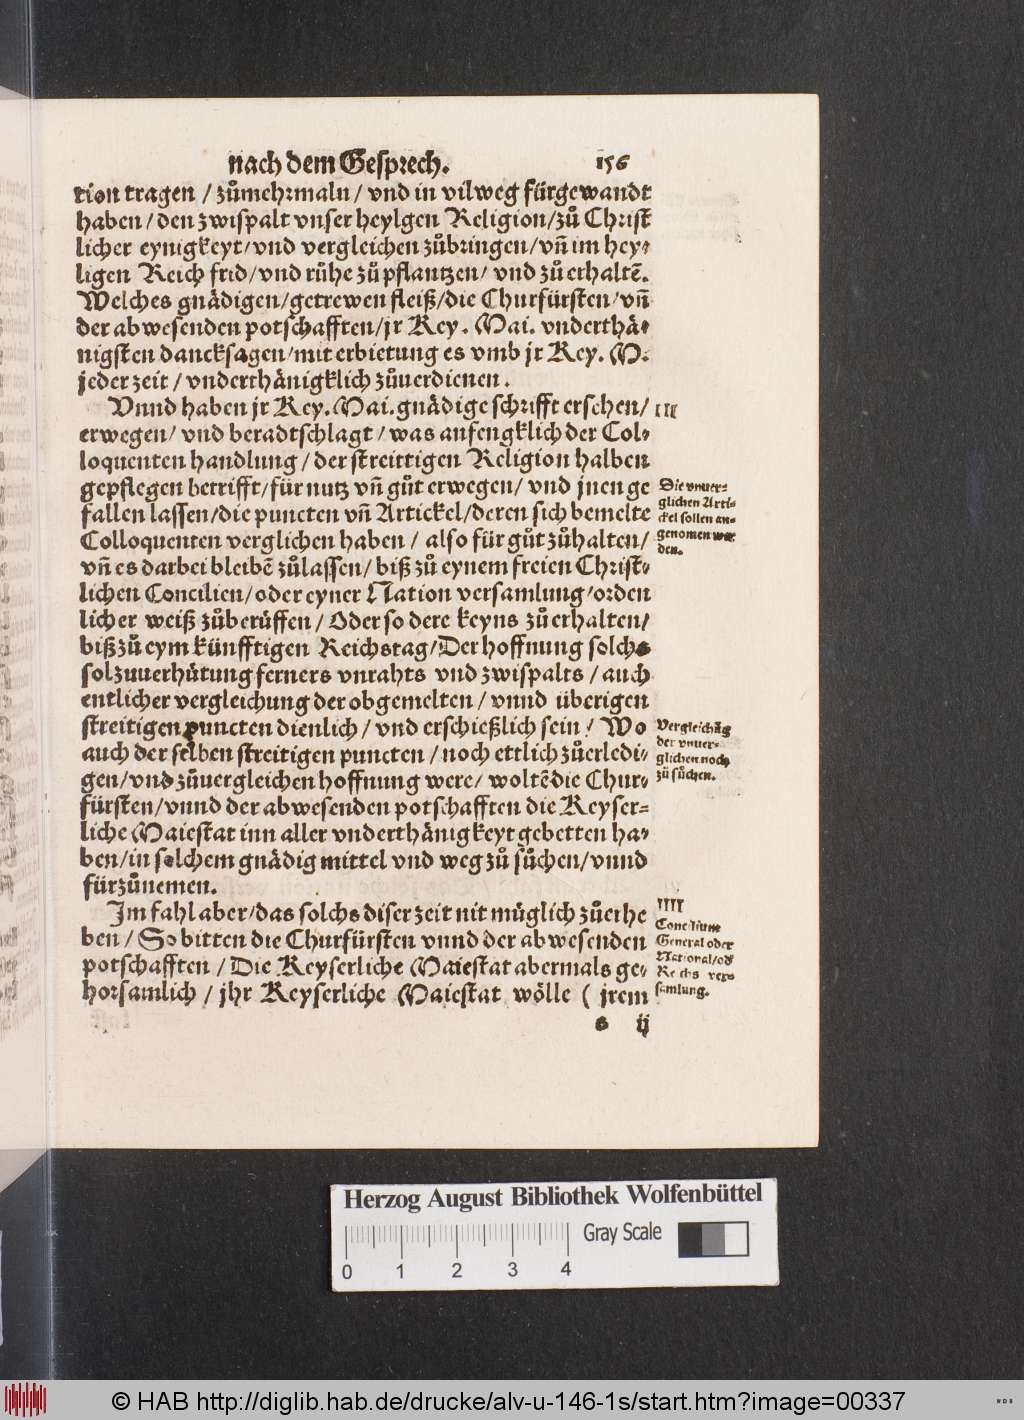 nach dem Gesprech. 156
tion tragen / zůmehrmaln / vnd in vilweg fürgewandt
haben / den zwispalt vnser heylgen Religion / zů Christ
licher eynigkeyt / vnd vergleichen zůbringen / vñ im hey⸗
ligen Reich frid / vnd rühe zů pflantzen / vnd zů erhaltē.
Welches gnädigen / getrewen fleiß / die Churfürsten / vñ
der abwesenden potschafften / jr Key. Mai. vnderthä⸗
nigsten dancksagen / mit erbietung es vmb jr Key. M.
jeder zeit / vnderthänigklich zůuerdienen.
Vnnd haben jr Key. Mai. gnädige schrifft ersehen /
III
erwegen / vnd beradtschlagt / was anfengklich der Col⸗
loquenten handlung / der streittigen Religion halben
gepflegen betrifft / für nutz vñ gůt erwegen / vnd jnen ge
fallen lassen / die puncten vñ Artickel / deren sich bemelte
Colloquenten verglichen haben / also für gůt zůhalten /
vñ es darbei bleibē zůlassen / biß zů eynem freien Christ⸗
lichen Concilien / oder eyner Nation versamlung / orden
licher weiß zůberüffen / Oder so dere keyns zů erhalten /
biß zů eym künfftigen Reichstag / Der hoffnung solchs
sol zuuerhütung ferners vnrahts vnd zwispalts / auch
entlicher vergleichung der obgemelten / vnnd überigen
streitigen puncten dienlich / vnd erschießlich sein / Wo
auch der selben streitigen puncten / noch ettlich zůerledi⸗
gen / vnd zůuergleichen hoffnung were / woltē die Chur⸗
fürsten / vnnd der abwesenden potschafften die Keyser⸗
liche Maiestat inn aller vnderthänigkeyt gebetten ha⸗
ben / in solchem gnädig mittel vnd weg zů sůchen / vnnd
fürzůnemen.
Im fahl aber / das solchs diser zeit nit müglich zůerhe
ben / So bitten die Churfürsten vnnd der abwesenden
potschafften / Die Keyserliche Maiestat abermals ge⸗
horsamlich / jhr Keyserliche Maiestat wölle ( jrem
s ij
Die vnuer⸗
glichen Arti⸗
ckel sollen an⸗
genomen wer
den.
Vergleichūg
der vnuer⸗
glichen noch
zů sůchen.
IIII
Concilium
General oder
National / od
Reichs ver⸗
samlung.
Herzog August Bibliothek Wolfenbüttel
Gray Scale
0 1 2 3 4
© HAB http://diglib.hab.de/drucke/alv-u-146-1s/start.htm?image=00337